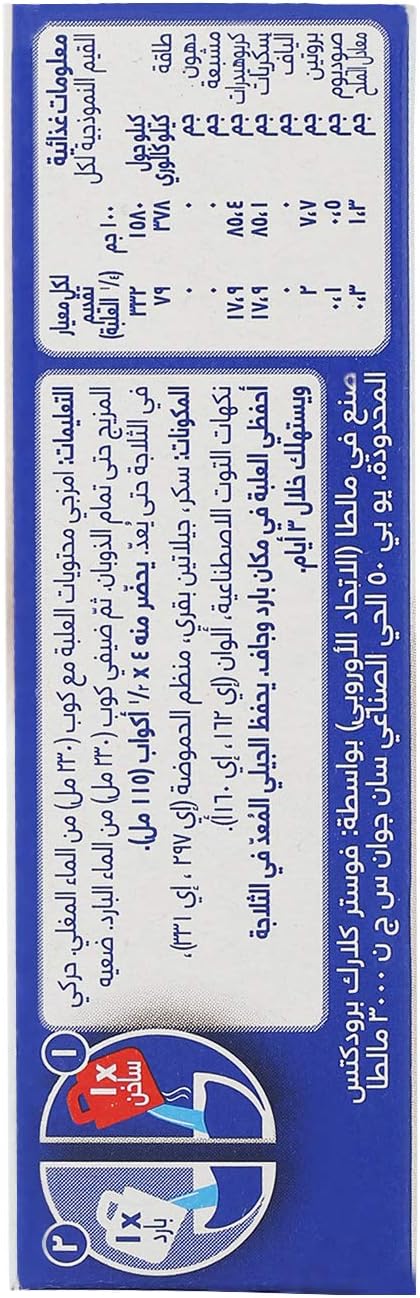 معلومات غذائية
القيم النموذجية لكل
١٠٠ جم
لكل معيار تقييم (١/٤ العلبة)
طاقة كيلوجول ١٥٨٠ ٣٣٢
كيلوكالوري ٣٧٨ ٧٩
دهون جم ٠ ٠
مشبعة جم ٠ ٠
كربوهيدرات جم ٨٥،٤ ١٧،٩
سكريات جم ٨٥،١ ١٧،٩
الياف جم ٠ ٠
بروتين جم ٧،٧ ٢
صوديوم جم ٠،٥ ٠،١
معادل الملح جم ١،٣ ٠،٣
التعليمات: امزجي محتويات العلبة مع كوب (٢٣٠ مل) من الماء المغلي. حركي
المزيج حتى تمام الذوبان. ثمّ ضيفي كوب (٢٣٠ مل) من الماء البارد. ضعيه
في الثلاجة حتى يُعدّ. يحضّر منه ٤ X ١/٢ أكواب (١١٥ مل).
المكونات: سكر، جيلاتين بقري، منظم الحموضة (إي ٢٩٧ ، إي ٣٣١)،
نكهات التوت الاصطناعية، ألوان (إي ١٦٢ ، إي ١٦٠أ).
أحفظي العلبة في مكان بارد وجاف. يحفظ الجيلي المُعدّ في الثلاجة
ويستهلك خلال ٣ أيام.
صنع في مالطا (الاتحاد الأوروبي) بواسطة: فوستر كلارك برودكتس
المحدودة. يو بي ٥٠ الحي الصناعي سان جوان س ج ن ٣٠٠٠ مالطا
١
١X
ساخن
٢
١X
بارد